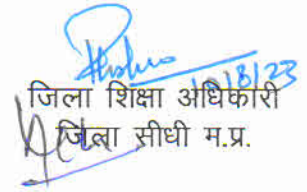 10/8/23
जिला शिक्षा अधिकारी
जिला सीधी म.प्र.